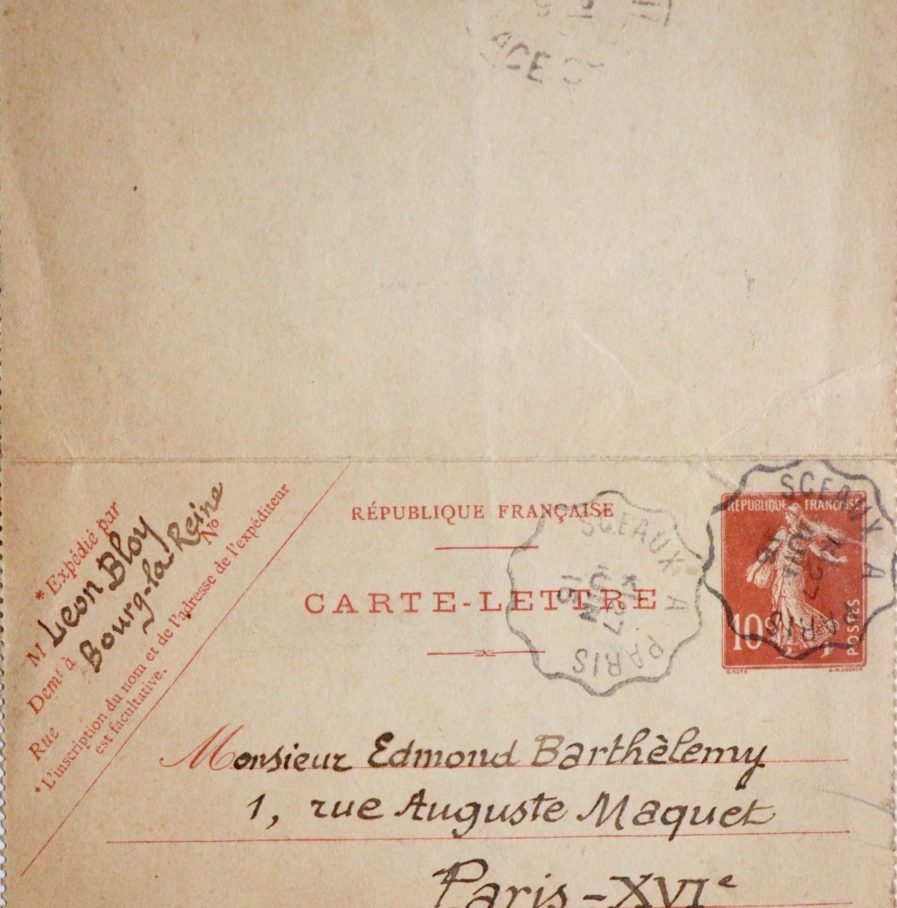 ACE
RÉPUBLIQUE FRANÇAISE
CARTE-LETTRE
* Expédié par
M Leon Bloy
Demt à Bourg-la Reine
Rue No
* L'inscription du nom et de l'adresse de l'expéditeur
est facultative.
SCEAUX A PARIS
27
JUIN
16
RÉPUBLIQUE FRANÇAISE
10c
POSTES
SCEAUX A PARIS
27
Monsieur Edmond Barthèlemy
1, rue Auguste Maquet
Paris-XVIe